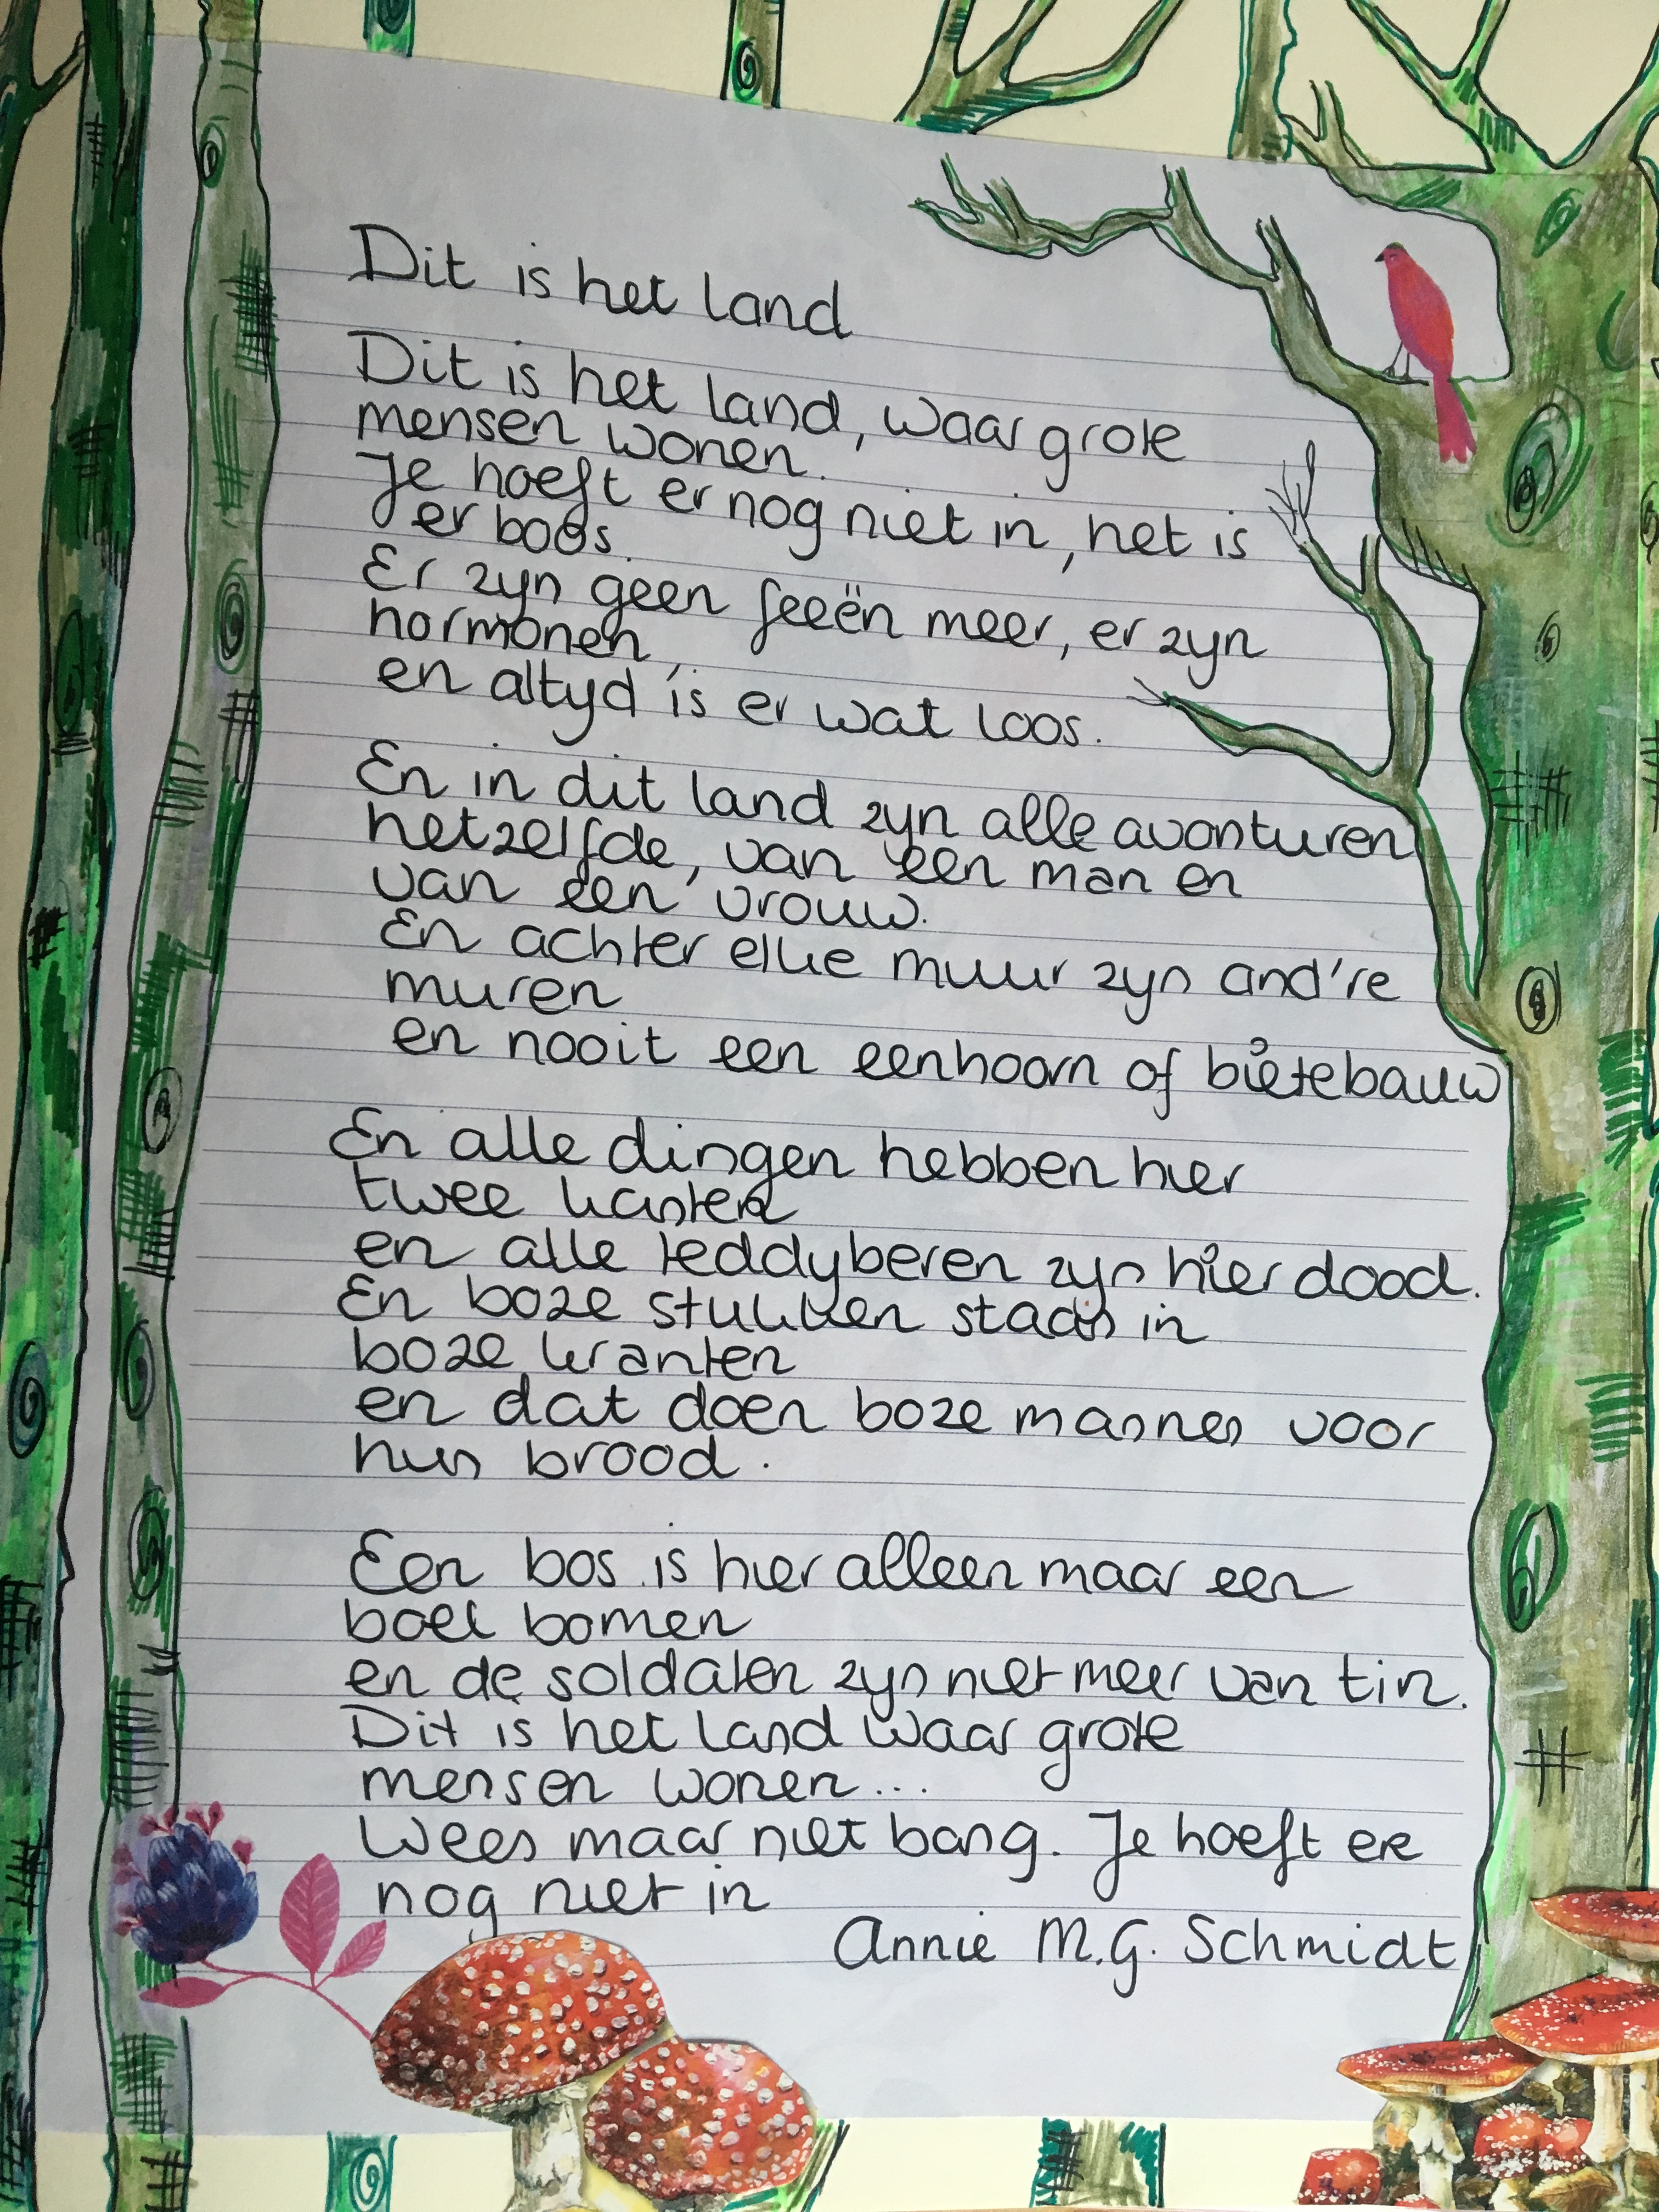 Dit is het land
Dit is het land, waar grote
mensen wonen.
Je hoeft er nog niet in, het is
er boos.
Er zijn geen feeën meer, er zijn
hormonen,
en altijd is er wat loos.
En in dit land zijn alle avonturen
hetzelfde, van een man en
van een vrouw.
En achter elke muur zijn and're
muren
en nooit een eenhoorn of bietebauw
En alle dingen hebben hier
twee kanten
en alle teddyberen zijn hier dood.
En boze stukken staan in
boze kranten
en dat doen boze mannen voor
hun brood.
Een bos is hier alleen maar een
boel bomen
en de soldaten zijn niet meer van tin.
Dit is het land waar grote
mensen wonen...
Wees maar niet bang. Je hoeft er
nog niet in
Annie M.G. Schmidt